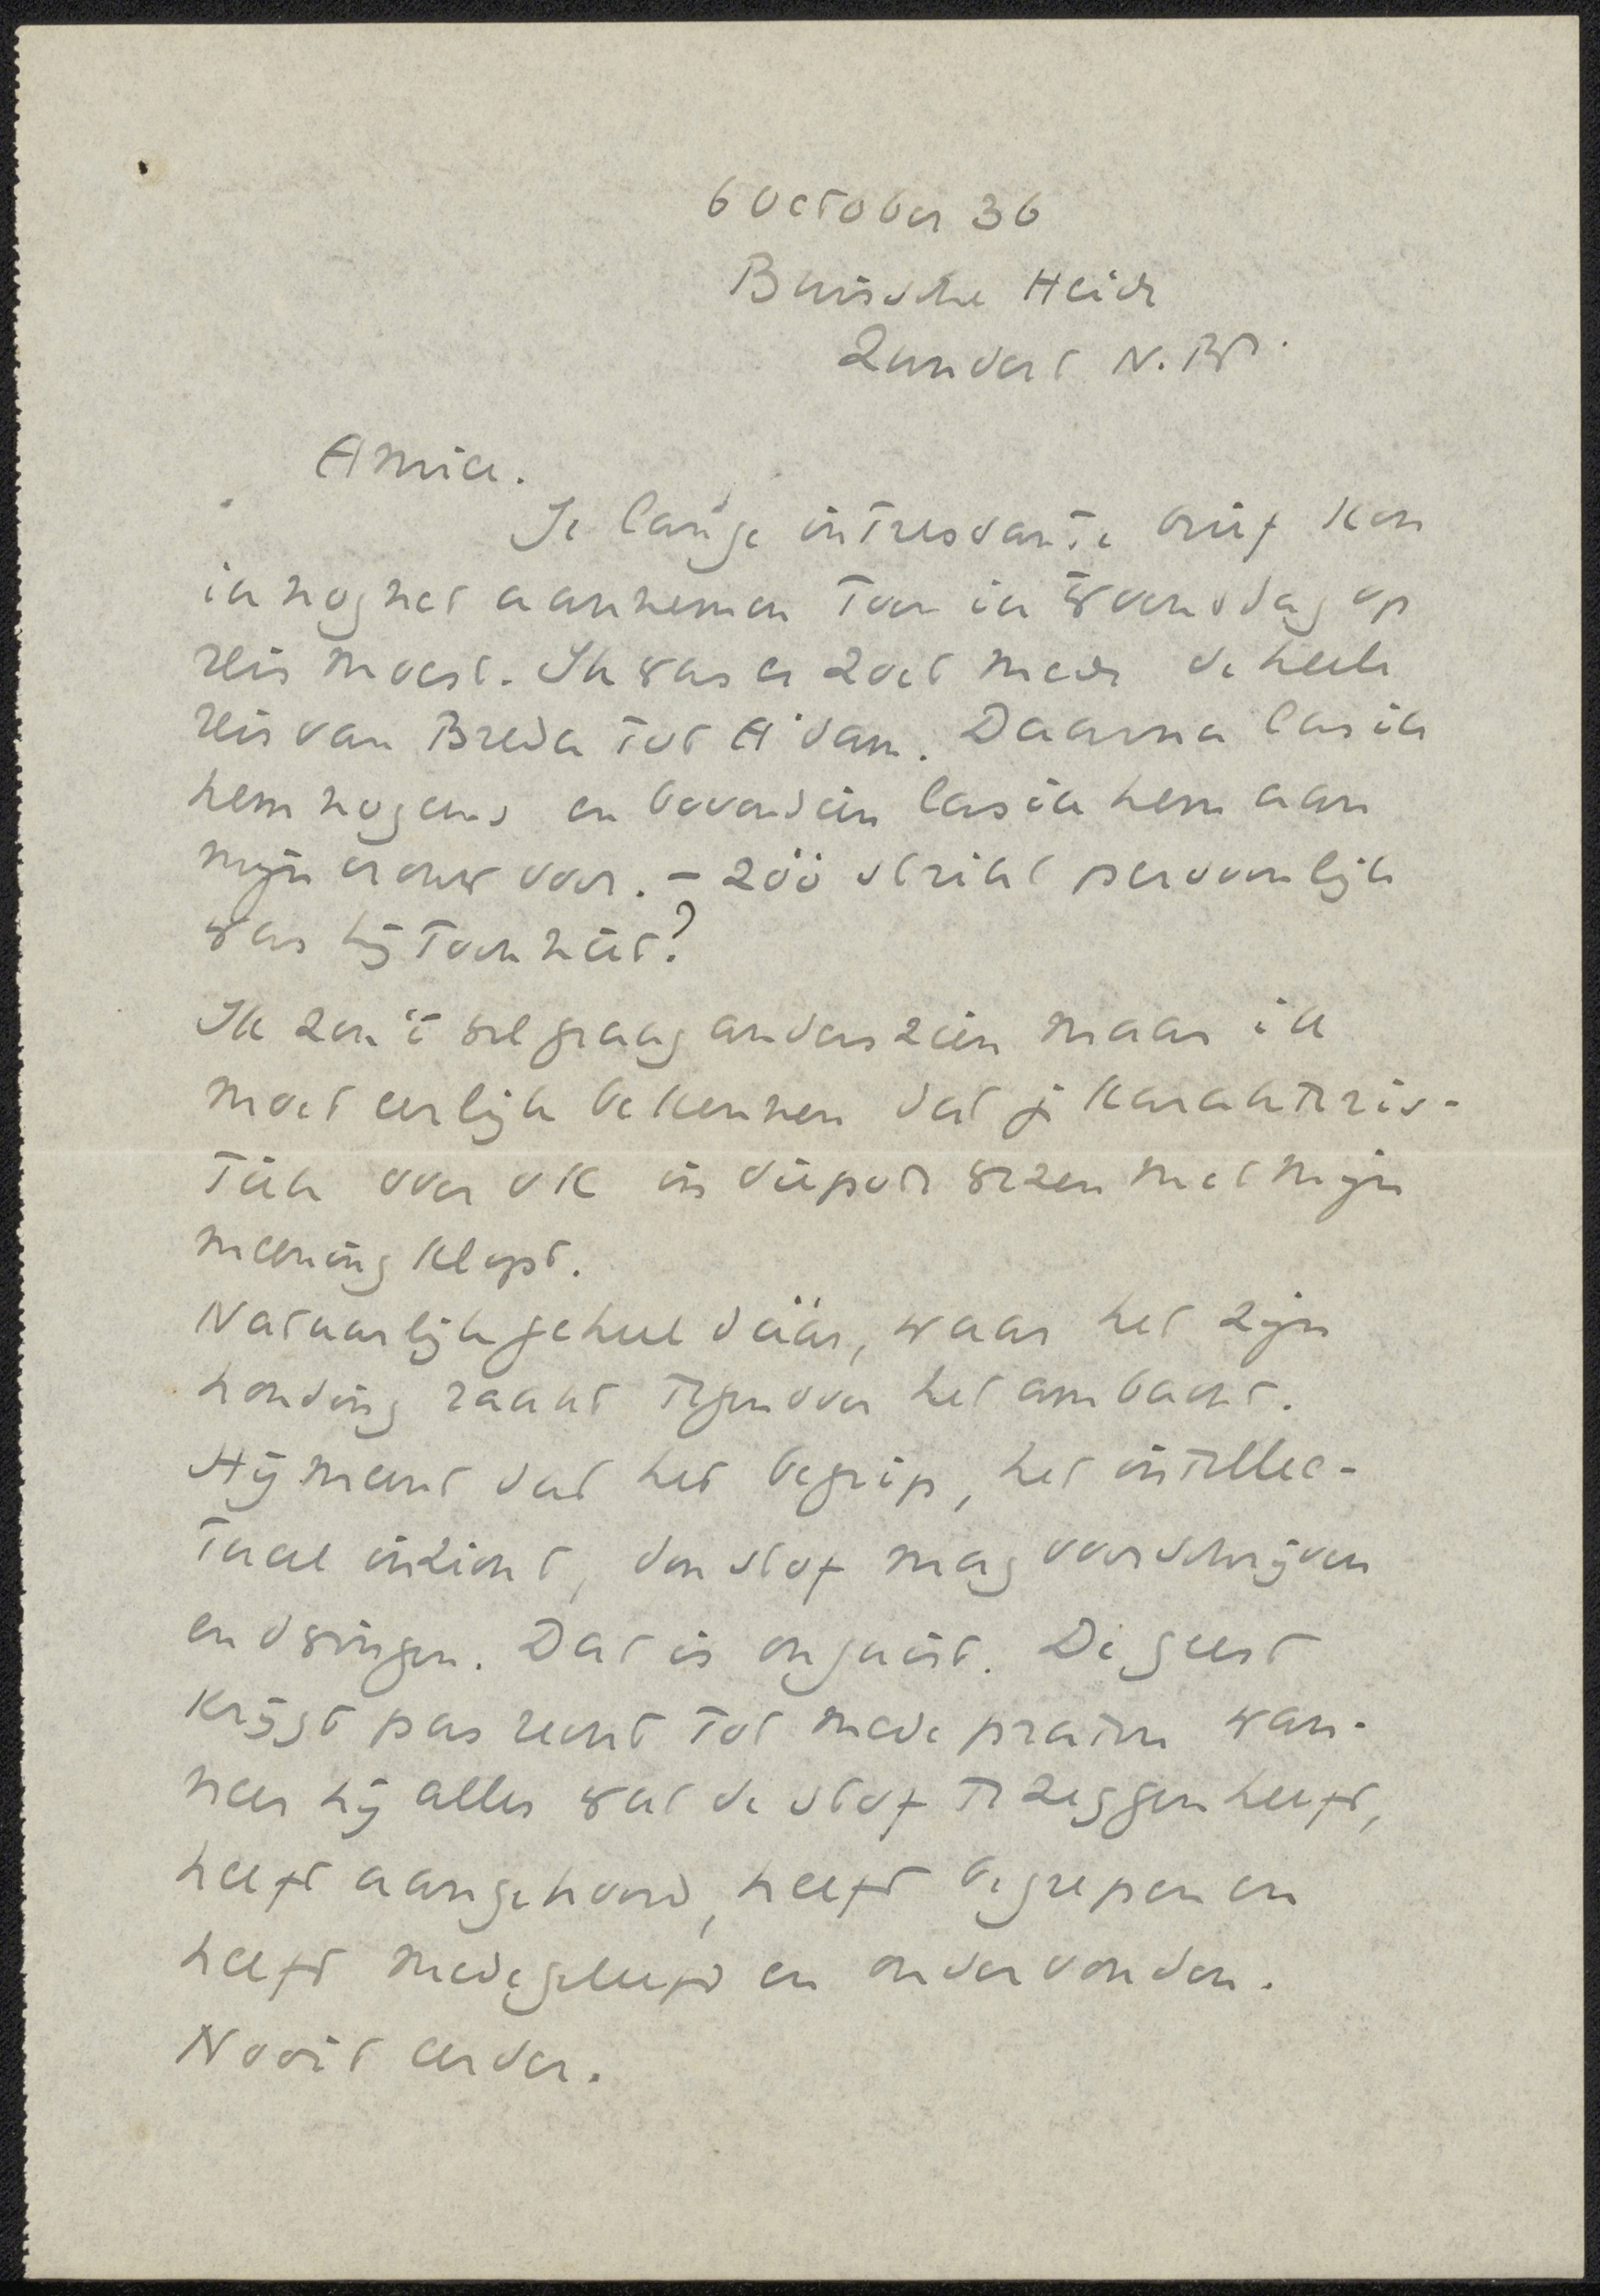 6 October 36
Buissche Heide
Zundert N.Br.
Amice.
Je lange intressante brief kon
ik nog net aannemen toen ik Woensdag op
reis moest. Ik was er zoet mede de heele
reis van Breda tot A'dam. Daarna las ik
hem nogeens en bovendien las ik hem aan
mijn vrouw voor. – zóó strikt persoonlijk
was hij toch niet?
Ik zou 't wel graag anders zien maar ik
moet eerlijk bekennen dat je karakteris-
tiek over v K in diepste wezen met mijn
meening klopt.
Natuurlijk geheel dáár, waar het zijn
houding raakt tegenover het ambacht.
Hij meent dat het begrip, het intellec-
tueel inzicht, den stof mag voorschrijven
en dwingen. Dat is onjuist. De geest
krijgt pas recht tot mede praten wan-
neer hij alles wat de stof te zeggen heeft,
heeft aangehoord, heeft begrepen en
heeft medegeleefd en ondervonden.
Nooit eerder.